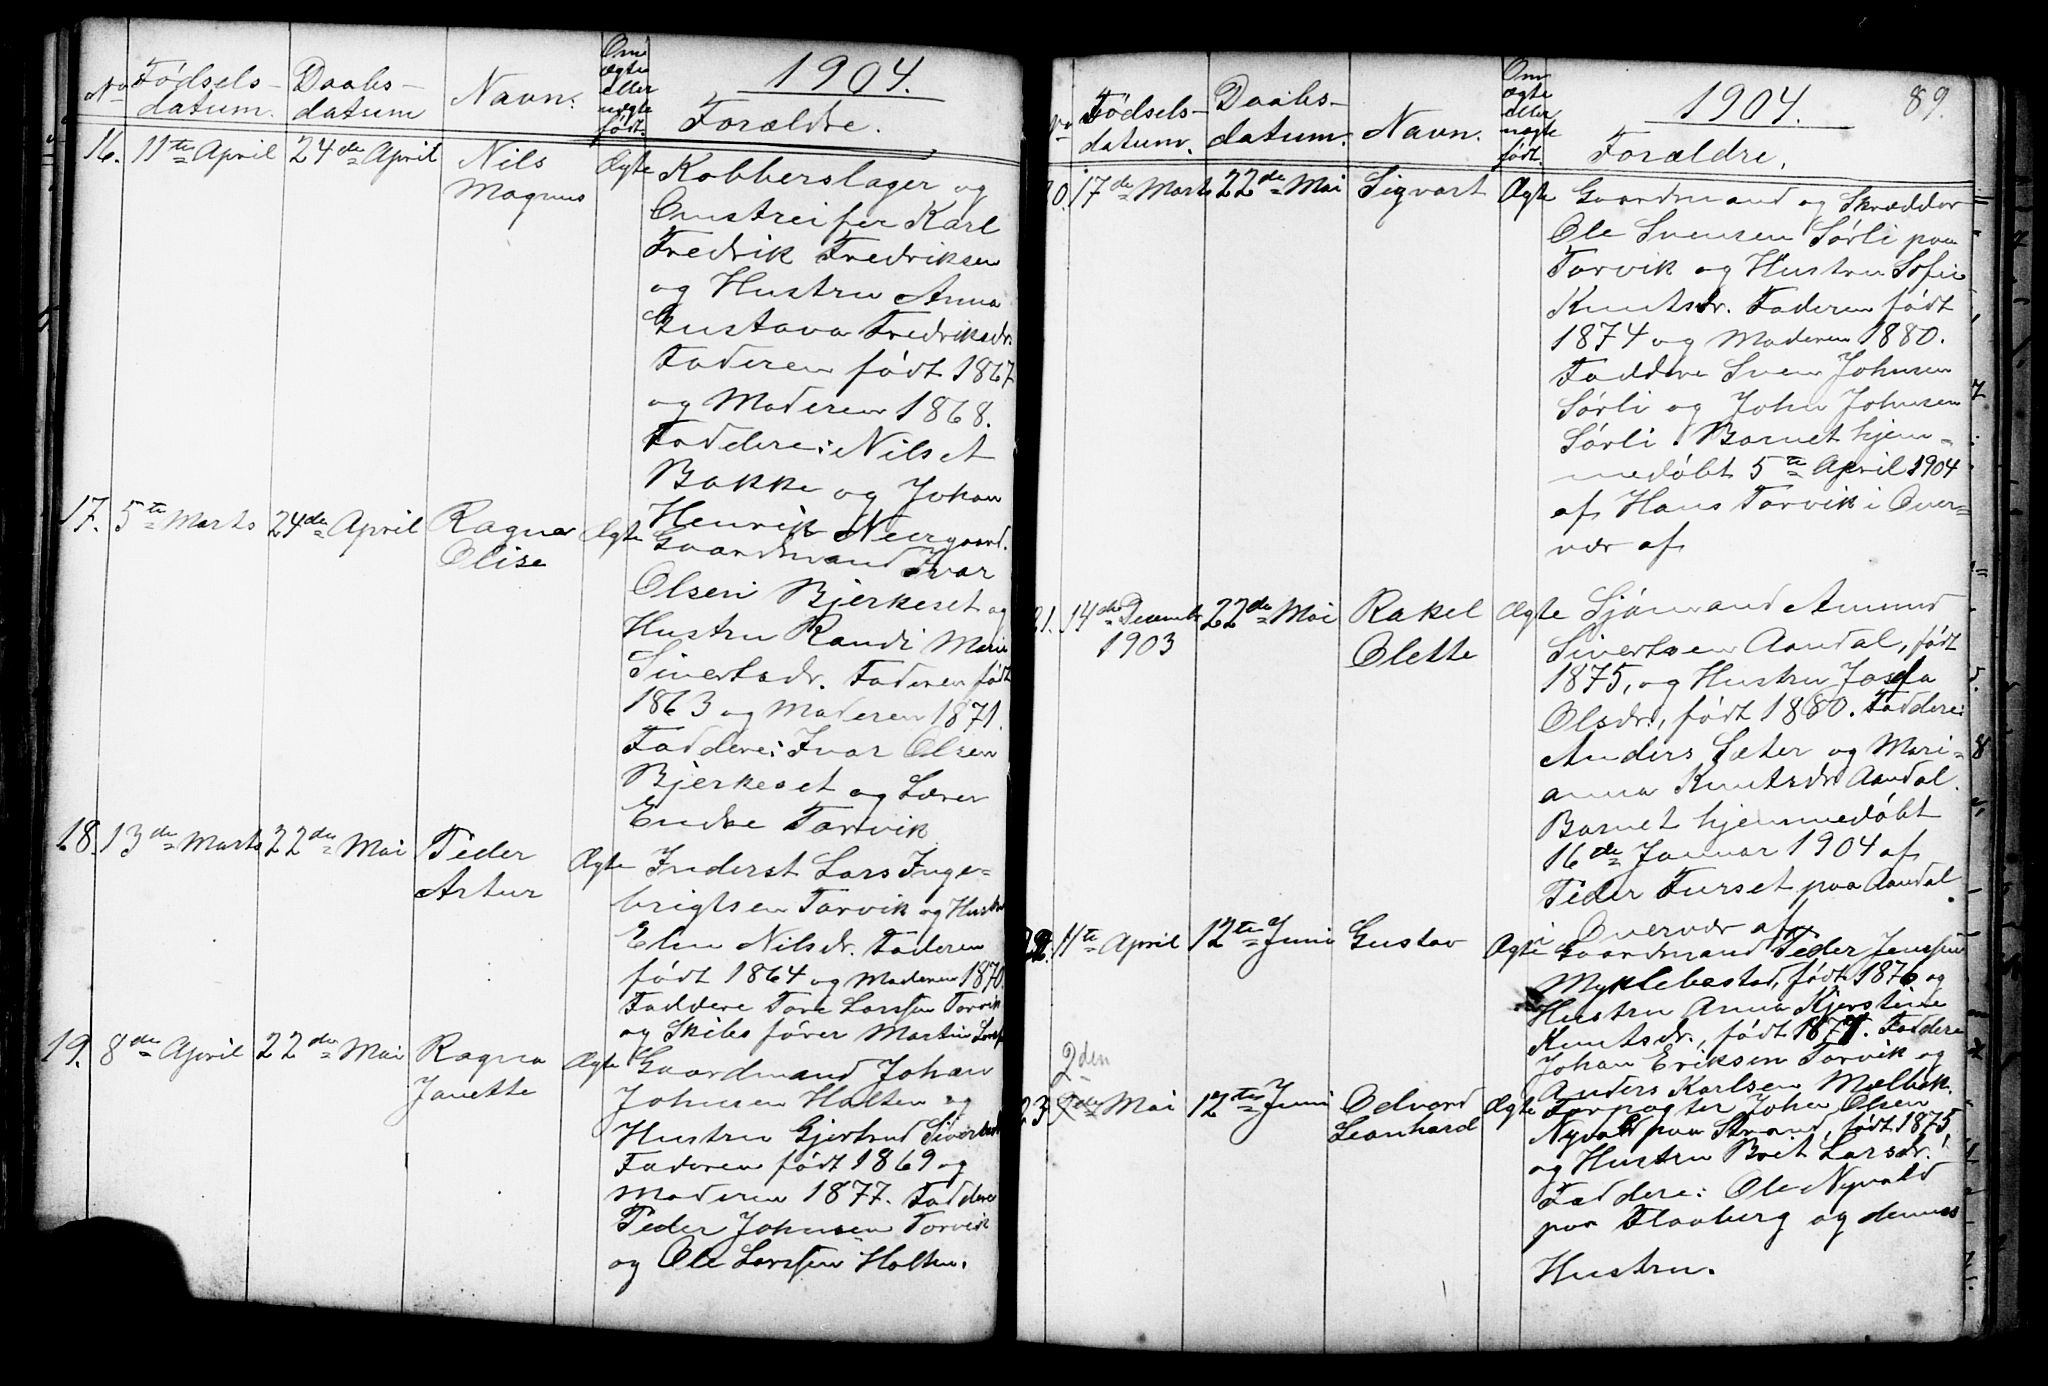 No
Fødsels-
datum.
Daabs-
datum
Navn.
Om
ægte
eller
uægte
født.
1904.
Forældre.
16. 11te April 24de April Nils Ægte Kobberslager og
Magnus
Omstreifer Karl
Fredrik Fredriksen
og Hustru Anna
Gustava Fredriksdr.
Faderen født 1867
og Moderen 1868.
Faddere: Nils et
Bakke og Johan
Henrik Neergaard.
17. 5te Marts 24de April Ragna Ægte Gaardmand Ivar
Olise
Olsen Bjerkeset og
Hustru Randi Marie
Sivertsdr. Faderen født
1863 og Moderen 1871.
Faddere: Ivar Olsen
Bjerkeset og Lærer
Endre Torvik
18. 13de Marts 22de Mai Peder Ægte Inderst Lars Inge-
Artur
brigtsen Torvik og Hustru
Elen Nilsdr. Faderen
født 1864 og Moderen 1870.
Faddere Tore Larssen Torvik
og Skibsfører Martin
19. 8de April 22de Mai Ragna Ægte Gaardmand Johan
Janette
Johnsen Holten og
Hustru Gjertrud
Faderen født 1869 og
Moderen 1877. Faddere
Peder Johnsen Torvik
og Ole Larssen Holten.
No
Fødsels-
datum.
Daabs-
datum.
Navn.
Om
ægte
eller
uægte
født.
1904.
89.
Forældre.
20. 17de Marts 22de Mai Sigvart Ægte Gaardmand og Skrædder
Ole Svensen Sørli paa
Torvik og Hustru Sofie
Knutsdr. Faderen født
1874 og Moderen 1880.
Faddere Sven Johnsen
Sørli og John Johnsen
Sørli. Barnet hjem-
medøbt 5te April 1904
af Hans Torvik i Over-
vær af
21. 14de Decembr 22de Mai Rakel Ægte Sjømand Amund
1903
Olette
Sivertsen Aandal, født
1875, og Hustru Josefa
Olsdr., født 1880. Faddere:
Anders Sæter og Mari-
anna Knutsdr. Aandal.
Barnet hjemmedøbt
16de Januar 1904 af
Peder Furset paa Aandal
i Overvær af
22. 11te April 12te Juni Gustav Ægte Gaardmand Peder Jenssen
Myklebostad, født 1876 og
Hustru Anna Kjerstine
Knutsdr., født 1877. Faddere
Johan Eriksen Torvik og
Anders Karlsen
2den
23. Mai 12te Juni Edvard Ægte Forpagter John Olsen
Leonhard
Nyvold paa Strand, født 1875
og Hustru Brit Larsdr.
Faddere: Ole Nyvold
paa Flaaberg og dennes
Hustru.